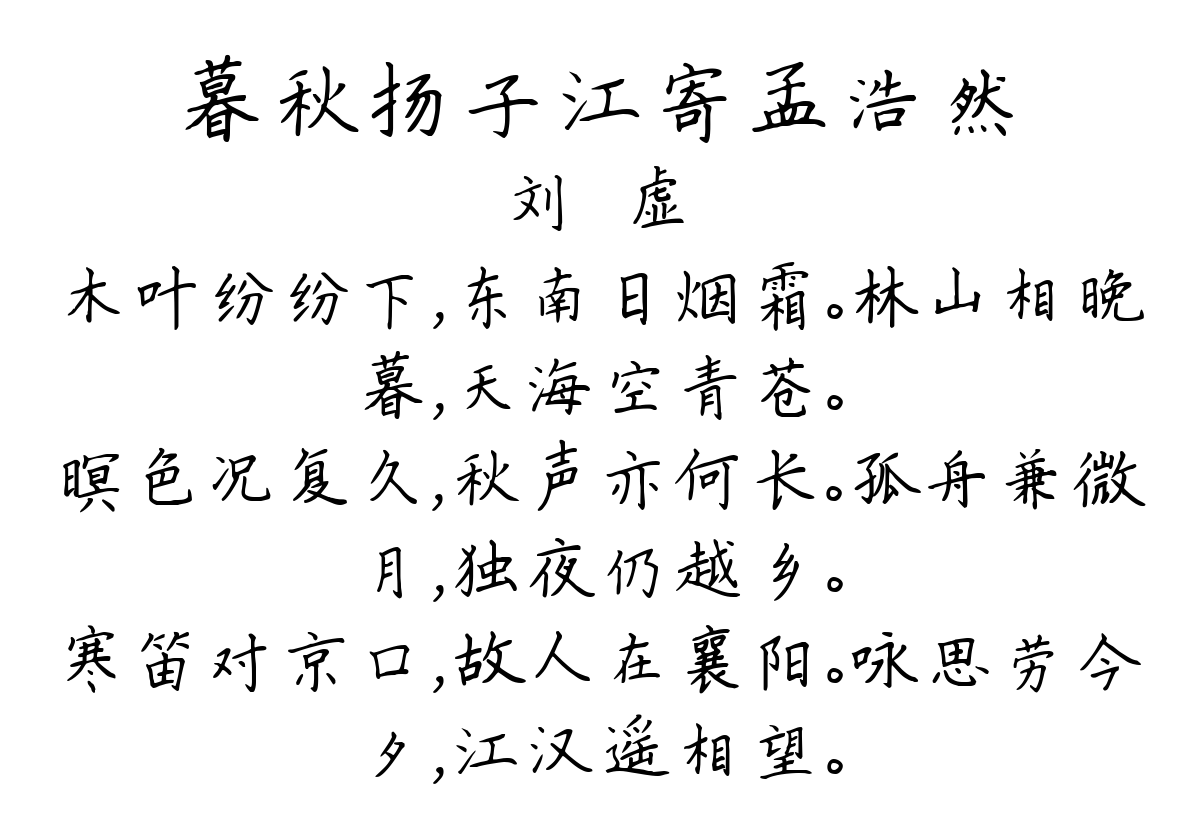 暮秋扬子江寄孟浩然
刘 虚
木叶纷纷下,东南日烟霜。林山相晚
暮,天海空青苍。
暝色况复久,秋声亦何长。孤舟兼微
月,独夜仍越乡。
寒笛对京口,故人在襄阳。咏思劳今
夕,江汉遥相望。